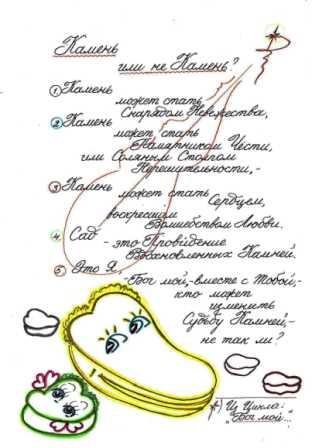 Камень
или не Камень?
① Камень
может стать
Снарядом Невежества,
② Камень
может стать
Памятником Чести,
или Соляным Столпом
Нерешительности,-
③ Камень
может стать
Сердцем,
воскресшим
Волшебством Любви.
④ Сад
- это Провидение
Вдохновленных Камней.
⑤ Это Я,
-Бог мой,-вместе с Тобой,-
кто может
изменить
Судьбу Камней,-
не так ли?
*) Из Цикла:
"Бог мой..."